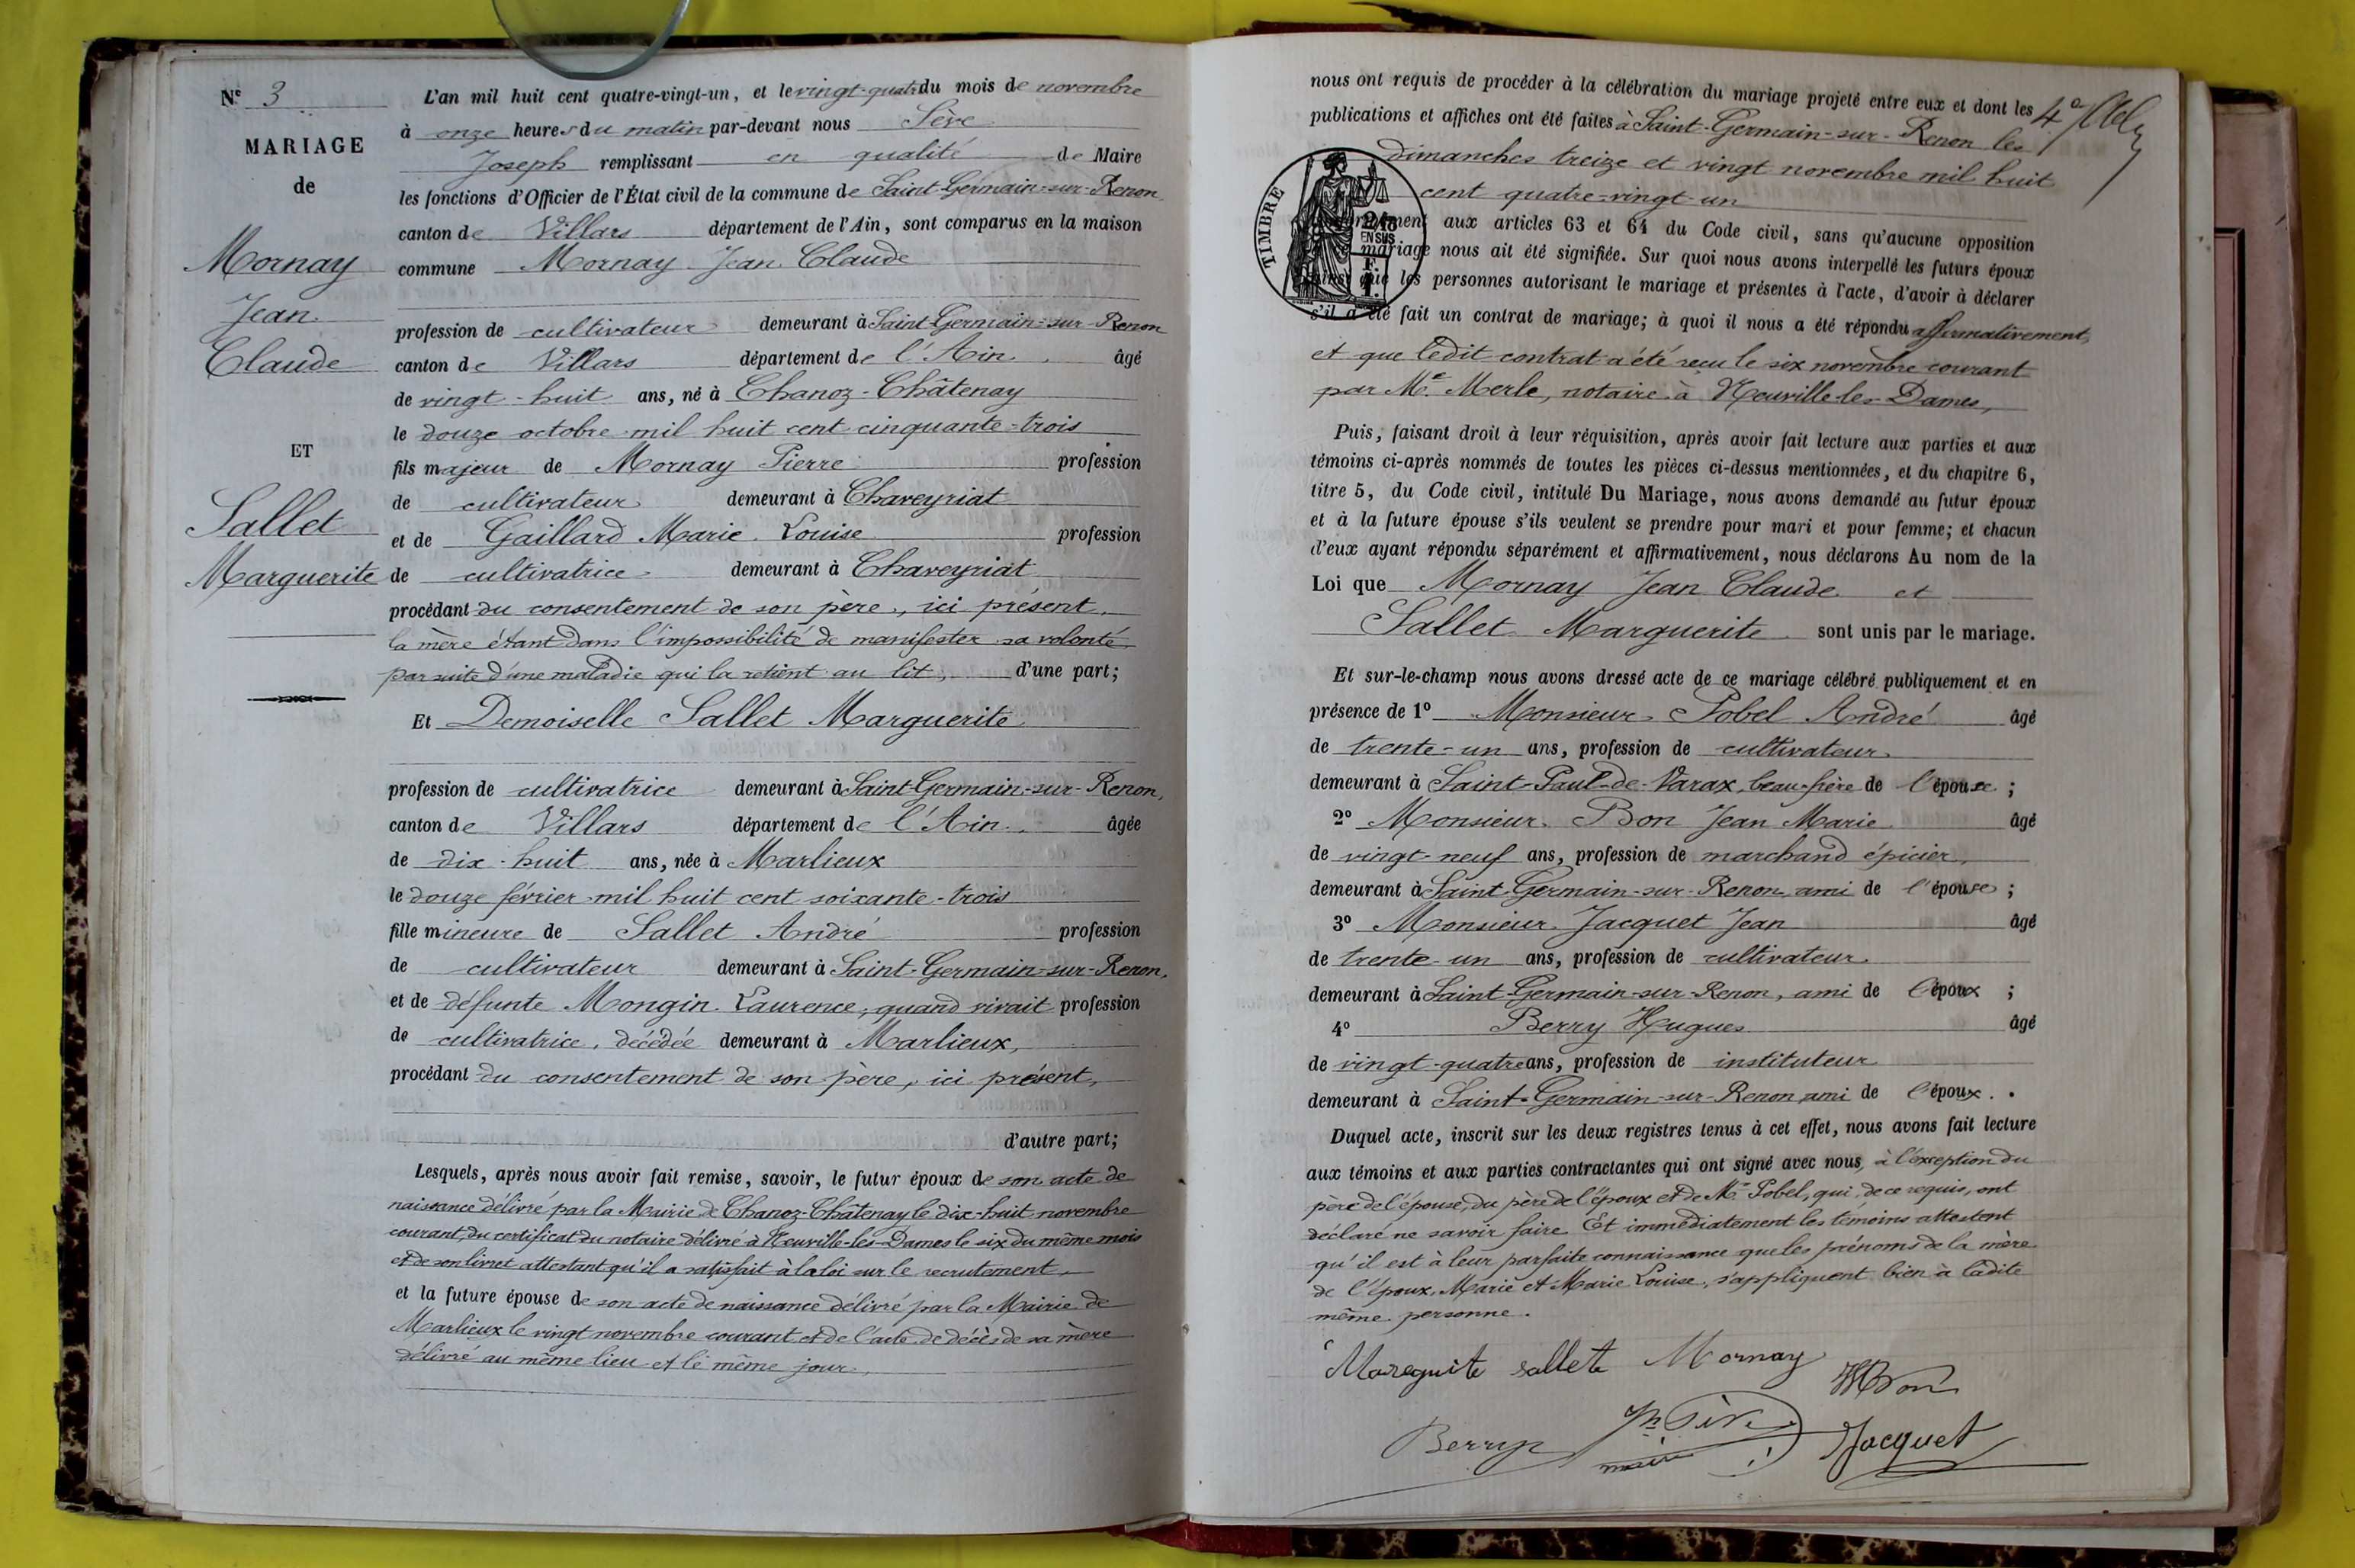 N° 3
MARIAGE
de
Mornay
Jean
Claude
ET
Sallet
Marguerite
L'an mil huit cent quatre-vingt-un, et le vingt-quatre du mois de novembre
à onze heures du matin par-devant nous Sève
Joseph remplissant en qualité de Maire
les fonctions d'Officier de l'État civil de la commune de Saint-Germain-sur-Renon,
canton de Villars département de l'Ain, sont comparus en la maison
commune Mornay Jean Claude
profession de cultivateur demeurant à Saint-Germain-sur-Renon
canton de Villars département de l'Ain. âgé
de vingt-huit ans, né à Chanoz-Châtenay
le douze octobre mil huit cent cinquante-trois
fils majeur de Mornay Pierre profession
de cultivateur demeurant à Chaveyriat
et de Gaillard Marie Louise profession
de cultivatrice demeurant à Chaveyriat
procédant du consentement de son père, ici présent,
la mère étant dans l'impossibilité de manifester sa volonté
par suite d'une maladie qui la retient au lit, d'une part;
Et Demoiselle Sallet Marguerite
profession de cultivatrice demeurant à Saint-Germain-sur-Renon,
canton de Villars département de l'Ain. âgée
de dix-huit ans, née à Marlieux
le douze février mil huit cent soixante-trois
fille mineure de Sallet André profession
de cultivateur demeurant à Saint-Germain-sur-Renon,
et de défunte Mongin Laurence, quand vivait profession
de cultivatrice, décédée demeurant à Marlieux,
procédant du consentement de son père, ici présent,
d'autre part;
Lesquels, après nous avoir fait remise, savoir, le futur époux de son acte de
naissance délivré par la Mairie de Chanoz-Châtenay le dix-huit novembre
courant, du certificat du notaire délivré à Neuville-les-Dames le six du même mois
et de son livret attestant qu'il a satisfait à la loi sur le recrutement,
et la future épouse de son acte de naissance délivré par la Mairie de
Marlieux le vingt novembre courant et de l'acte de décès de sa mère
délivré au même lieu et le même jour,
nous ont requis de procéder à la célébration du mariage projeté entre eux et dont les
publications et affiches ont été faites à Saint-Germain-sur-Renon les
dimanches treize et vingt novembre mil huit
cent quatre-vingt-un
TIMBRE
2/10
EN SUS
aux articles 63 et 64 du Code civil, sans qu'aucune opposition
mariage nous ait été signifiée. Sur quoi nous avons interpellé les futurs époux
ainsi que les personnes autorisant le mariage et présentes à l'acte, d'avoir à déclarer
s'il a été fait un contrat de mariage; à quoi il nous a été répondu affirmativement,
et que ledit contrat a été reçu le six novembre courant
par Me Merle, notaire à Neuville-les-Dames,
Puis, faisant droit à leur réquisition, après avoir fait lecture aux parties et aux
témoins ci-après nommés de toutes les pièces ci-dessus mentionnées, et du chapitre 6,
titre 5, du Code civil, intitulé Du Mariage, nous avons demandé au futur époux
et à la future épouse s'ils veulent se prendre pour mari et pour femme; et chacun
d'eux ayant répondu séparément et affirmativement, nous déclarons Au nom de la
Loi que Mornay Jean Claude et
Sallet Marguerite sont unis par le mariage.
Et sur-le-champ nous avons dressé acte de ce mariage célébré publiquement et en
présence de 1° Monsieur Pobel André âgé
de trente-un ans, profession de cultivateur
demeurant à Saint-Paul-de-Varax, beau-frère de l'épouse ;
2° Monsieur Bon Jean Marie âgé
de vingt-neuf ans, profession de marchand épicier,
demeurant à Saint-Germain-sur-Renon, ami de l'épouse ;
3° Monsieur Jacquet Jean âgé
de trente-un ans, profession de cultivateur
demeurant à Saint-Germain-sur-Renon, ami de l'époux ;
4° Berry Hugues âgé
de vingt-quatre ans, profession de instituteur
demeurant à Saint-Germain-sur-Renon, ami de l'époux.
Duquel acte, inscrit sur les deux registres tenus à cet effet, nous avons fait lecture
aux témoins et aux parties contractantes qui ont signé avec nous, à l'exception du
père de l'épouse, du père de l'époux et de Mr Pobel, qui, de ce requis, ont
déclaré ne savoir faire. Et immédiatement les témoins attestent
qu'il est à leur parfaite connaissance que les prénoms de la mère
de l'époux, Marie et Marie Louise, s'appliquent bien à ladite
même personne.
Mareguite sallet Mornay
Bon
Berry Sève Jacquet
maire